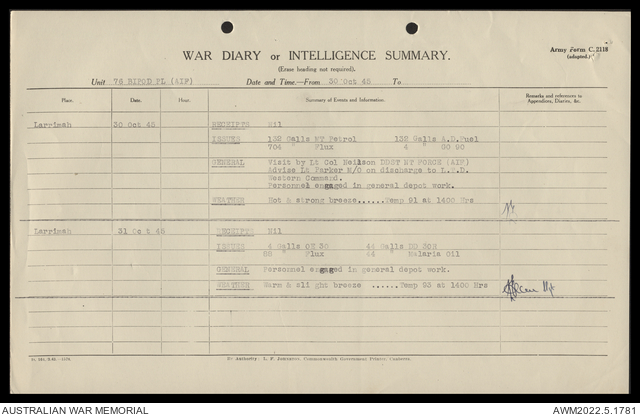 Army Form C.2118
(adapted.)
WAR DIARY or INTELLIGENCE SUMMARY.
(Erase heading not required).
Unit 76 BIPOD PL (AIF) Date and Time.—From 30 Oct 45 To
Place. Date. Hour. Summary of Events and Information. Remarks and references to Appendices, Diaries, &c.
Larrimah 30 Oct 45 RECEIPTS Nil
ISSUES 132 Galls MT Petrol 132 Galls A.D.Fuel
704 " Flux 4 " GO 90
GENERAL Visit by Lt Col Neilson DDST NT FORCE (AIF)
Advise Lt Parker M/O on discharge to L.H.D.
Western Command.
Personnel engaged in general depot work.
WEATHER Hot & strong breeze......Temp 91 at 1400 Hrs
Larrimah 31 Oc t 45 RECEIPTS Nil
ISSUES 4 Galls OE 30 44 Galls DO 30H
88 " Flux 44 " Malaria Oil
GENERAL Personnel engaged in general depot work.
WEATHER Warm & sli ght breeze ......Temp 93 at 1400 Hrs
By Authority: L. F. Johnston, Commonwealth Government Printer, Canberra.
AUSTRALIAN WAR MEMORIAL AWM2022.5.1781